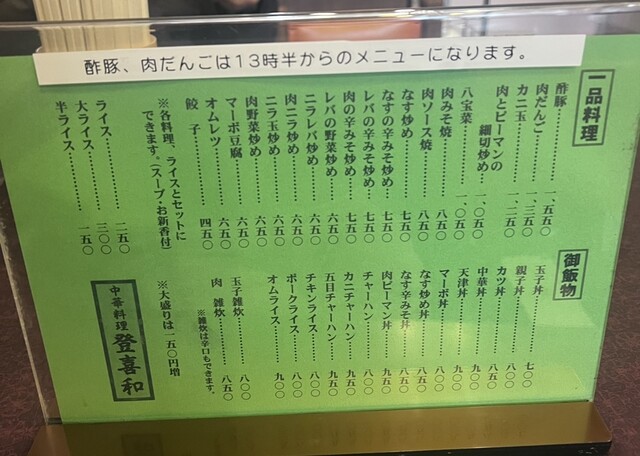 酢豚、肉だんごは13時半からのメニューになります。
一品料理
酢豚…………一、五五〇
肉だんご………一、三五〇
カニ玉…………一、二五〇
肉とピーマンの
細切炒め…一、〇五〇
八宝菜…………一、〇五〇
肉みそ焼…………八五〇
肉ソース焼………八五〇
なす炒め…………七五〇
なすの辛みそ炒め…七五〇
レバの辛みそ炒め…七五〇
肉の辛みそ炒め……七五〇
レバの野菜炒め……六五〇
ニラレバ炒め………六五〇
肉ニラ炒め…………六五〇
ニラ玉炒め…………六五〇
肉野菜炒め…………六五〇
マーボ豆腐…………六五〇
オムレツ……………六五〇
餃子…………………四五〇
※各料理、ライスとセットに
できます。(スープ・お新香付)
ライス…………二五〇
大ライス………三〇〇
半ライス………一五〇
御飯物
玉子丼…………七〇〇
親子丼…………八〇〇
カツ丼…………八五〇
中華丼…………九〇〇
天津丼…………九〇〇
マーボ丼………八五〇
なす炒め丼……八五〇
なす辛みそ丼…八五〇
肉ピーマン丼…九五〇
チャーハン……八〇〇
カニチャーハン…九五〇
五目チャーハン…九五〇
チキンライス……八〇〇
ポークライス……八〇〇
オムライス………九〇〇
玉子雑炊………八〇〇
肉 雑炊………八五〇
※雑炊は辛口もできます。
※大盛りは一五〇円増
中華料理 登喜和